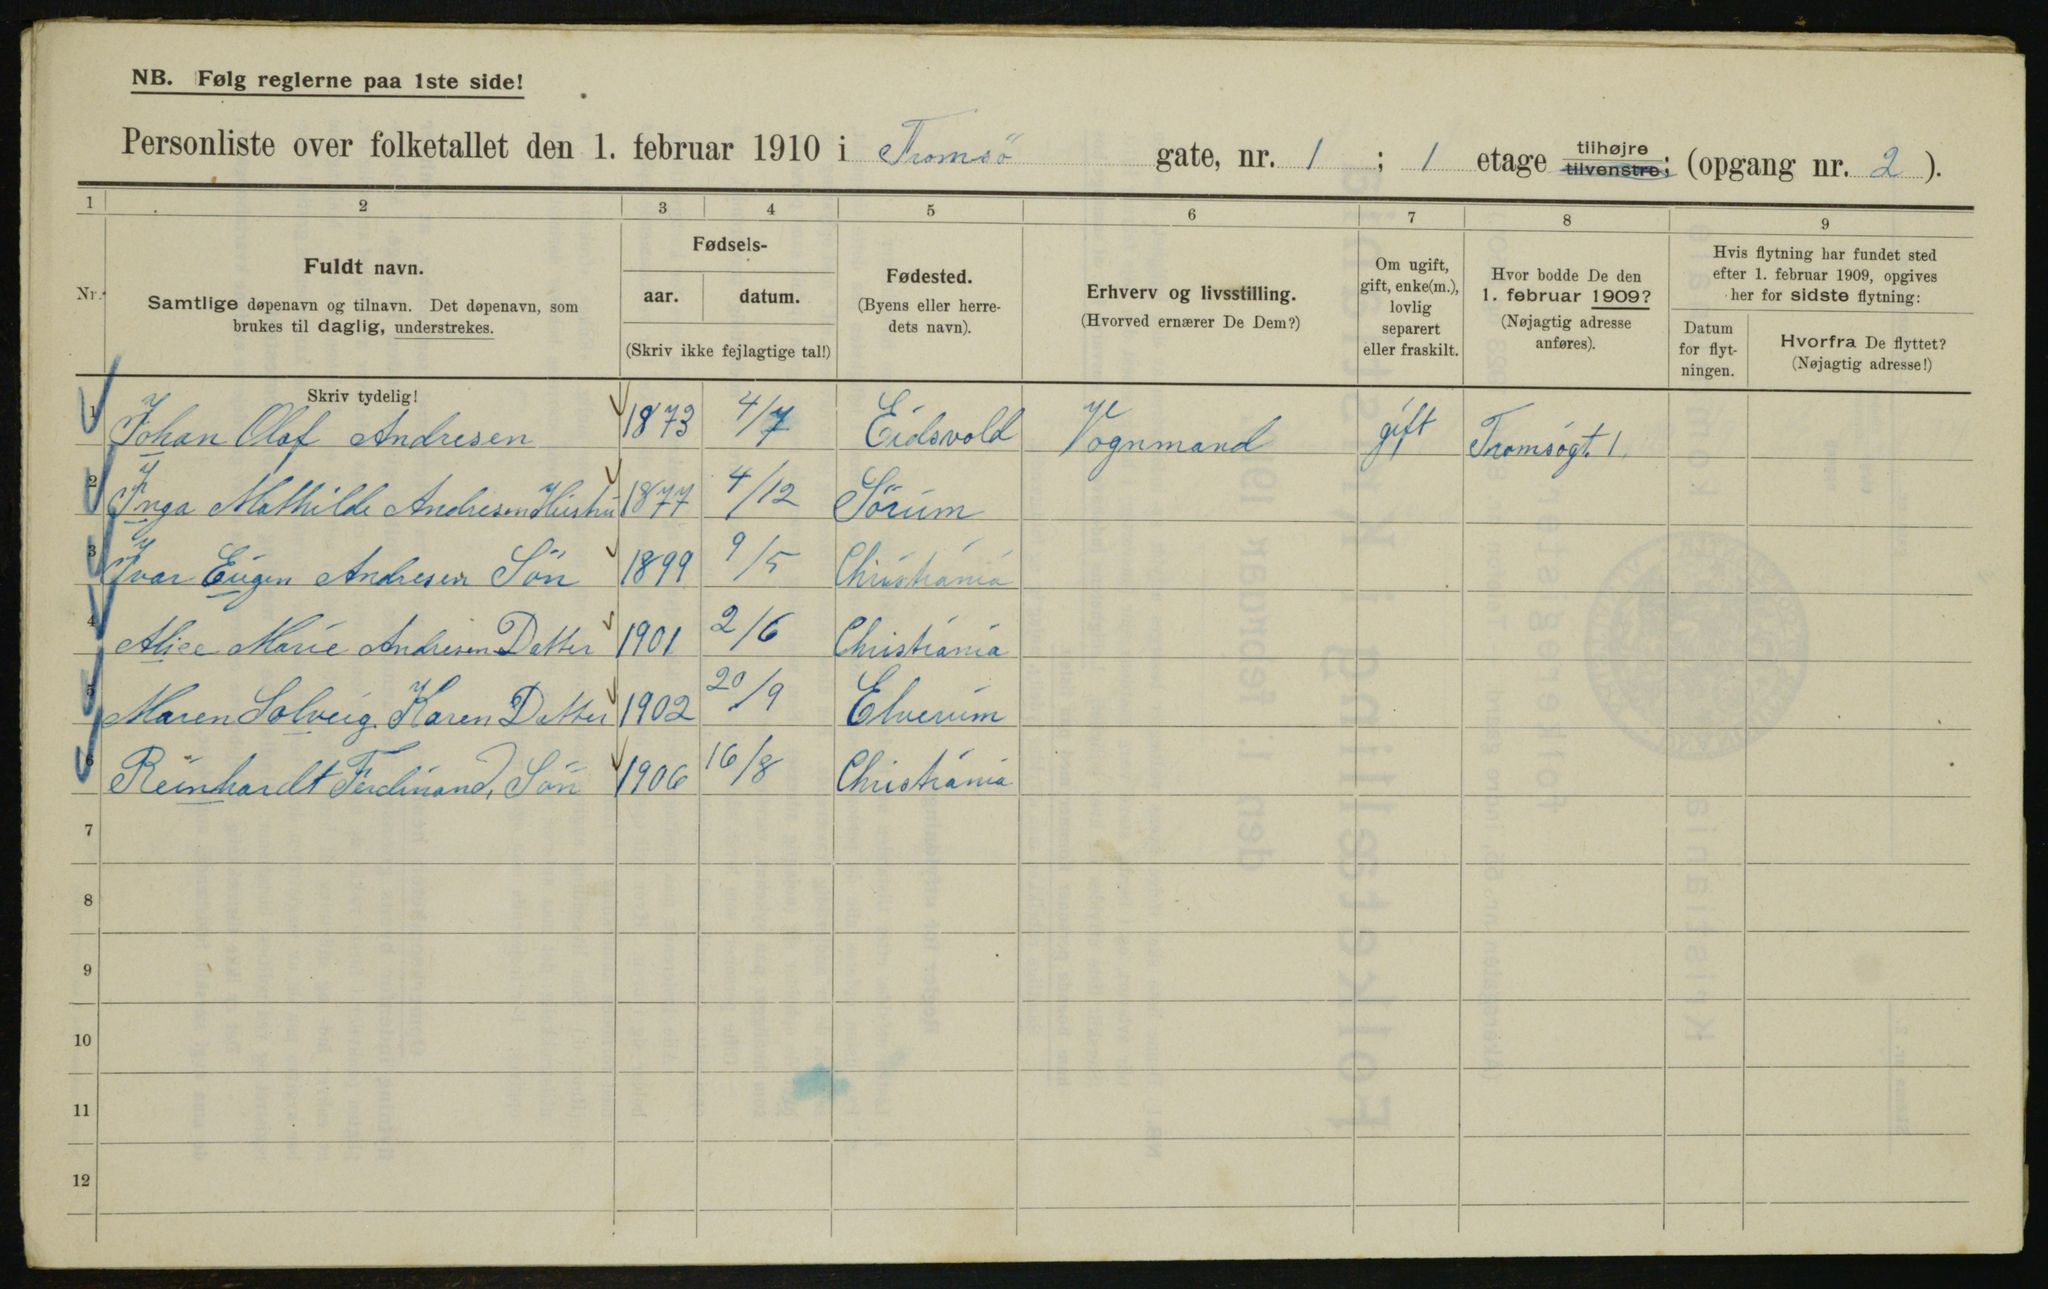 NB. Følg reglerne paa 1ste side!
Personliste over folketallet den 1. februar 1910 i Tromsö gate, nr. 1; 1 etage tilhøjre tilvenstre; (opgang nr. 2).
1 2 3 4 5 6 7 8 9
Nr.
Fuldt navn.
Samtlige døpenavn og tilnavn. Det døpenavn, som
brukes til daglig, understrekes.
Skriv tydelig!
Fødsels-
aar. datum.
(Skriv ikke fejlagtige tal!)
Fødested.
(Byens eller herre-
dets navn).
Erhverv og livsstilling.
(Hvorved ernærer De Dem?)
Om ugift,
gift, enke(m.),
lovlig
separert
eller fraskilt.
Hvor bodde De den
1. februar 1909?
(Nøjagtig adresse
anføres).
Hvis flytning har fundet sted
efter 1. februar 1909, opgives
her for sidste flytning:
Datum
for flyt-
ningen.
Hvorfra De flyttet?
(Nøjagtig adresse!)
1 Johan Olaf Andresen 1873 4/7 Eidsvold Vognmand gift Tromsøgt. 1.
2 Inga Mathilde Andresen Hustru 1877 4/12 Sörum
3 Ivar Eugen Andresen Sön 1899 9/5 Christiania
4 Alice Marie Andresen Datter 1901 2/6 Christiania
5 Maren Solveig Karen Datter 1902 20/9 Elverum
6 Reinhardt Ferdinand, Sön 1906 16/8 Christiania
7
8
9
10
11
12